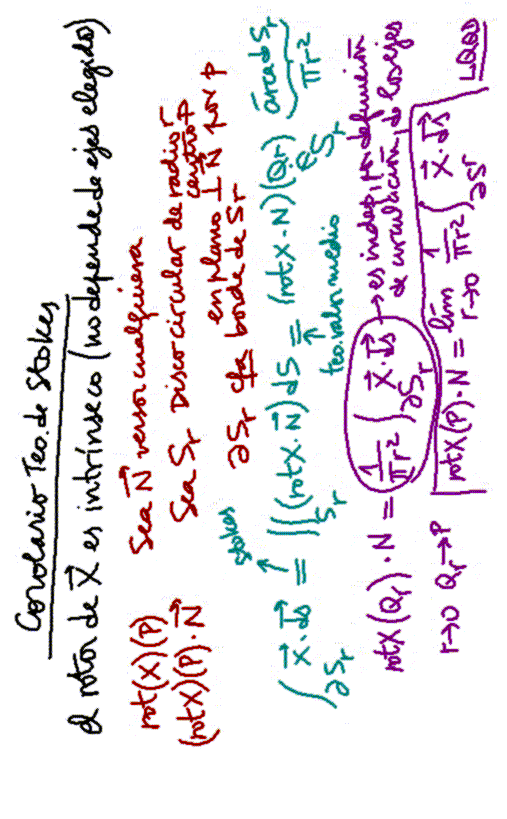 Corolario Teo. de Stokes
el rotor de X⃗ es intrínseco (no depende de ejes elegido)
rot(X)(P) Sea N⃗ versor cualquiera
(rotX)(P)·N⃗ Sea Sr Disco circular de radio r centro P
en plano ⊥ N⃗ por p
∂Sr cfa borde de Sr
∫∂Sr X⃗·ds⃗ = ∬Sr (rotX·N⃗)dS = (rotX·N)(Qr) área de Sr
stokes teo. valor medio ∈ Sr πr²
rotX(Qr)·N = 1/πr² ∫∂Sr X⃗·ds⃗ → es indep, por definición
de circulación, de los ejes
r→0 Qr→P rotX(P)·N = lím r→0 1/πr² ∫∂Sr X⃗·ds⃗ LQQD